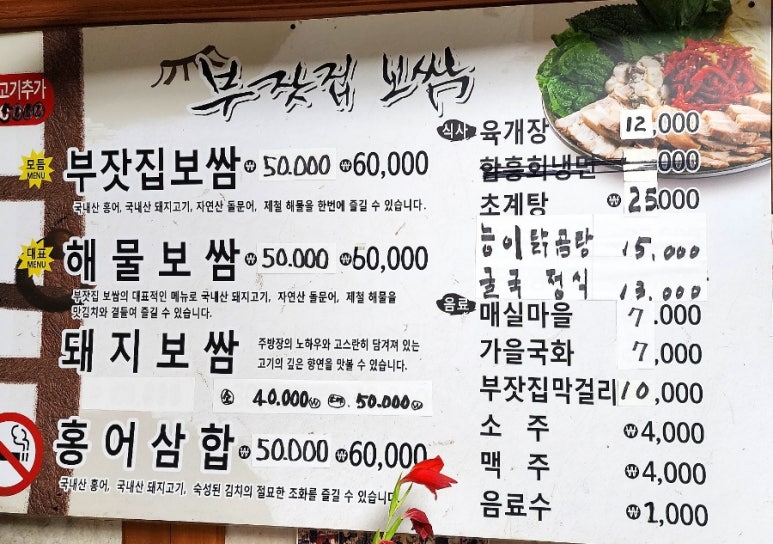 부잣집 보쌈
고기추가
모듬 MENU
부잣집보쌈 ₩50.000 ₩60,000
국내산 홍어, 국내산 돼지고기, 자연산 돌문어, 제철 해물을 한번에 즐길 수 있습니다.
대표 MENU
해물보쌈 ₩50.000 ₩60,000
부잣집 보쌈의 대표적인 메뉴로 국내산 돼지고기, 자연산 돌문어, 제철 해물을
맛김치와 곁들여 즐길 수 있습니다.
돼지보쌈
주방장의 노하우와 고스란히 담겨져 있는
고기의 깊은 향연을 맛볼 수 있습니다.
소 40.000₩ 50.000₩
홍어삼합 ₩50.000 ₩60,000
국내산 홍어, 국내산 돼지고기, 숙성된 김치의 절묘한 조화를 즐길 수 있습니다
식사
육개장 12,000
함흥회냉면 000
초계탕 ₩25.000
능이닭곰탕 15.000
굴국 정식 13.000
음료
매실마을 7.000
가을국화 7,000
부잣집막걸리 10,000
소주 ₩4,000
맥주 ₩4,000
음료수 ₩1,000